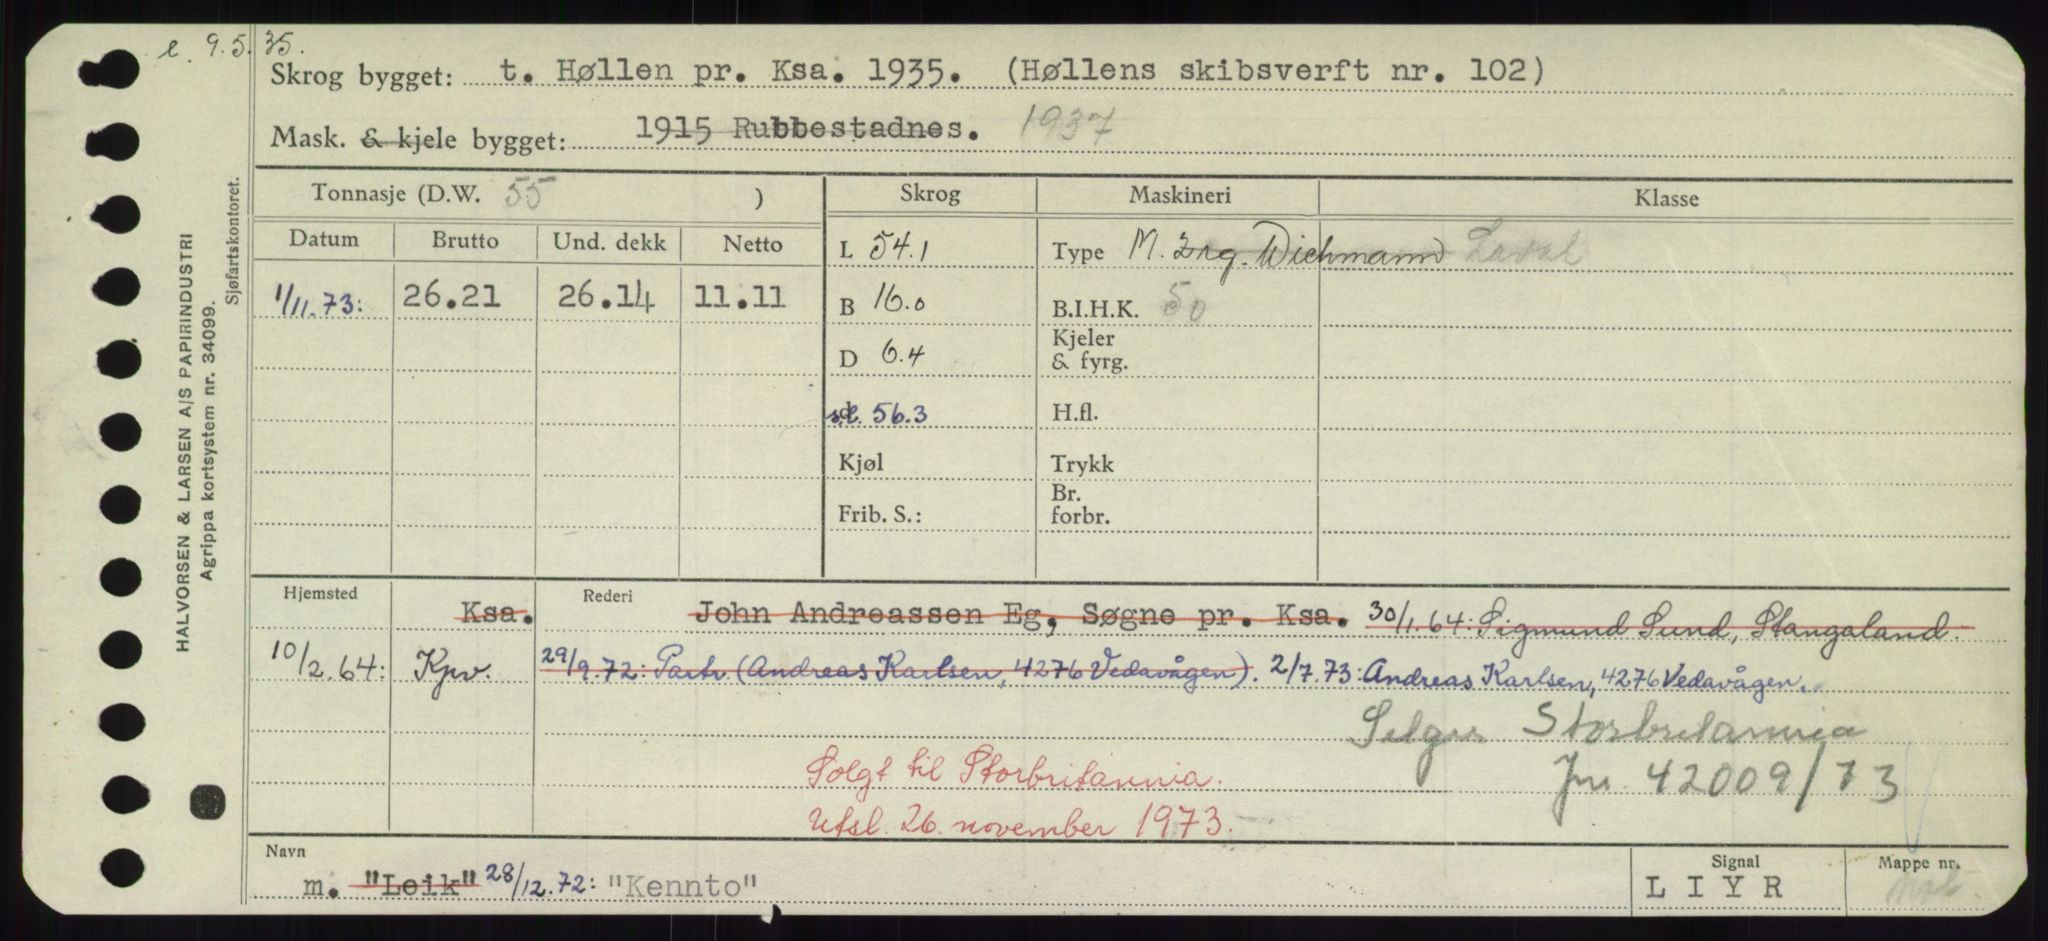 e. 9.5.35.
Skrog bygget: t. Høllen pr. Ksa. 1935. (Høllens skibsverft nr. 102)
Mask. & kjele bygget: 1915 Rubbestadnes. 1937
Tonnasje (D.W. 55 ) Skrog Maskineri Klasse
Datum Brutto Und. dekk Netto L 54.1 Type M. 2 rg. Wichmann
1/11.73: 26.21 26.14 11.11 B 16.0 B.I.H.K. 50
D 6.4 Kjeler
& fyrg.
56.3 H.fl.
Kjøl Trykk
Frib. S.: Br.
forbr.
Hjemsted Ksa. Rederi John Andreassen Eg, Søgne pr. Ksa. 30/1.64: Sigmund Sund, Stangaland.
10/2.64: Kpv. 29/9.72: Partr. (Andreas Karlsen, 4276 Vedavågen). 2/7.73: Andreas Karlsen, 4276 Vedavågen.
Selges Storbritannia
Jnr. 42009/73
Solgt til Storbritannia.
Utsl. 26. november 1973.
Navn Signal Mappe nr.
m. "Leik" 28/12.72: "Kennto" LIYR
HALVORSEN & LARSEN A/S PAPIRINDUSTRI
Agrippa kortsystem nr. 34099.
Sjøfartskontoret.